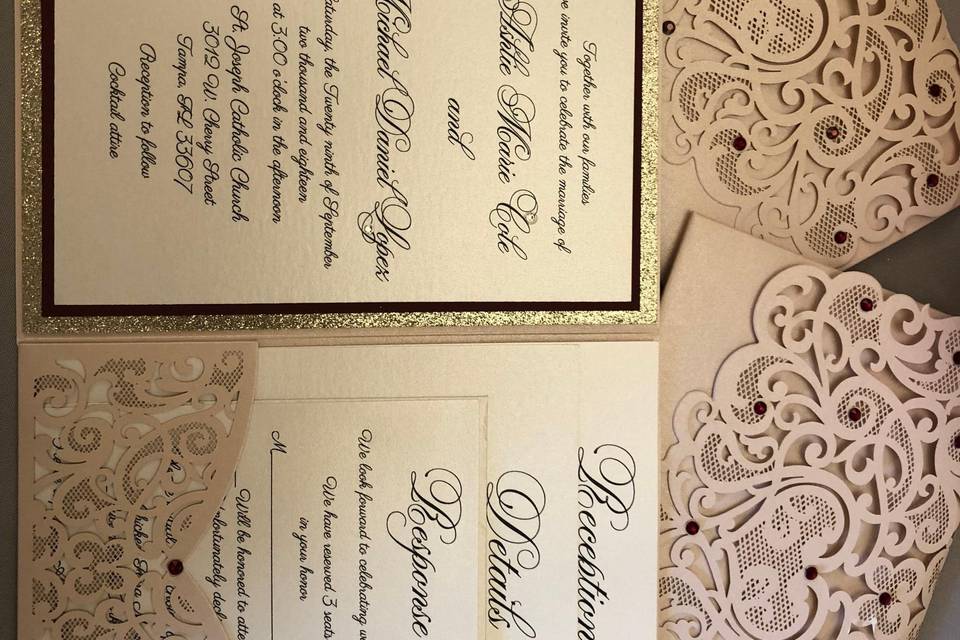 Together with our families
we invite you to celebrate the marriage of
Ashlie Marie Cole
and
Michael A Daniel Lopez
Saturday, the Twenty ninth of September
two thousand and eighteen
at 3:00 o'clock in the afternoon
St. Joseph Catholic Church
3012 W. Cherry Street
Tampa, FL 33607
Reception to follow
Cocktail attire
Reception
Details
Response
We look foward to celebrating w
We have reserved 3 seats
in your honor
M
Will be honored to atte